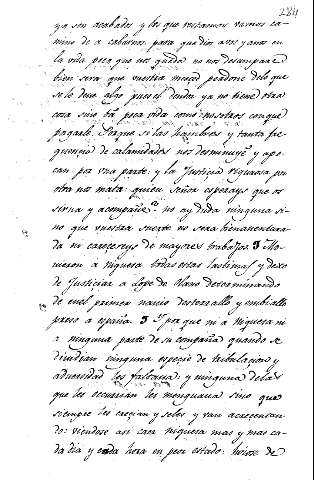 284
ya son acabados y los que restamos vamos ca-
mino de acabarnos, para que dios a vos y a nos en
la vida poca que nos queda no nos desampare
bien sera que vuestra merced perdone de lo que
se le deve algo pues el deudor ya no tiene otra
cosa sino tan poca vida como nosotros con que
pagarle. Porque si las hambres y tanta fre-
quencia de calamidades nos desminuye y apo-
can por una parte: y la Justicia rigurosa por
otra nos mata: quien Señor esperays que os
sirva y acompañe? no ay duda ninguna si-
no que vuestra suerte no sera bienaventura-
da ni carecereys de mayores trabajos. Mo-
vieron a niquesa todas estas lastimas y dexo
de Justiciar a Lope de Olano determinando
de en el primer navio desterrallo y embiallo
preso a españa. por que ni a Niquesa ni
a ninguna parte de su compañia quando se
dividian ninguna especie de tribulacion y
adversidad les faltava: y ninguna de las
que les ocurrian les menguava sino que
siempre les crecian y se les yvan acrecentan-
do: viendose asi caer Niquesa mas y mas ca-
da dia y cada hora en peor estado: hizose de